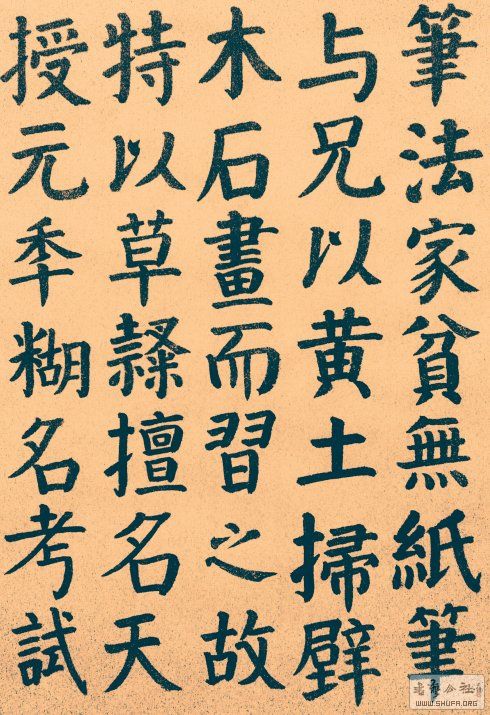 筆法家貧無紙筆
与兄以黄土掃壁
木石畫而習之故
特以草隸擅名天
授元秊糊名考試
WWW.SHUFA.ORG